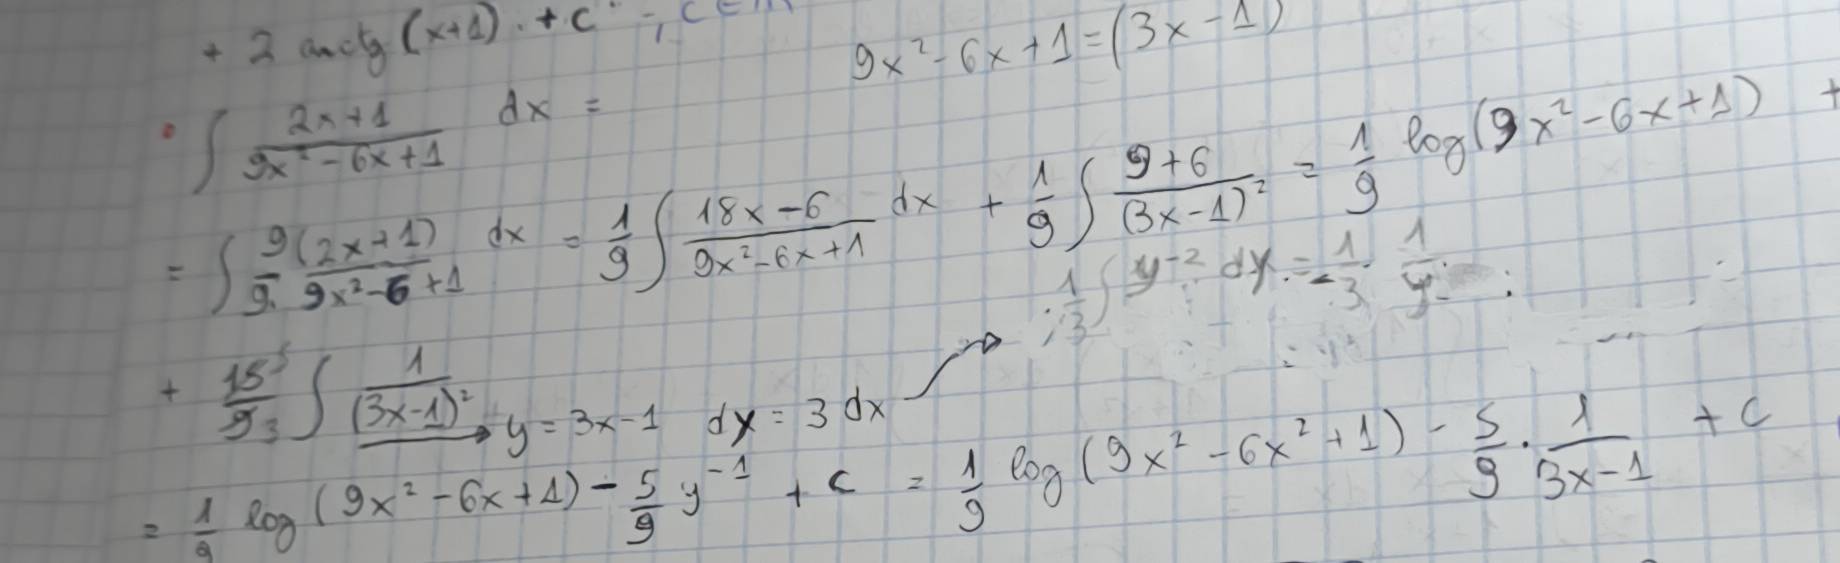 + 2 arctg (x+1) + c , c ∈ ℝ
9x² - 6x + 1 = (3x - 1)
∫ (2x+1)/(9x² - 6x + 1) dx =
= ∫ 9/9 · (2x+1)/(9x² - 6 + 1) dx = 1/9 ∫ (18x - 6)/(9x² - 6x + 1) dx + 1/9 ∫ (9+6)/(3x-1)² = 1/9 log(9x² - 6x + 1) +
1/3 ∫ y⁻² dy = - 1/3 · 1/y
+ 15⁵/9₃ ∫ 1/(3x-1)² → y = 3x - 1 dy = 3 dx →
= 1/9 log(9x² - 6x + 1) - 5/9 y⁻¹ + c = 1/9 log(9x² - 6x² + 1) - 5/9 · 1/(3x-1) + c